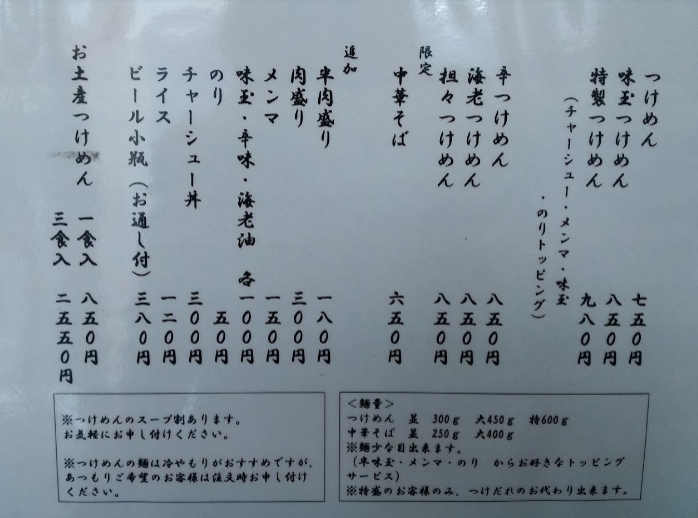 つけめん 七五0円
味玉つけめん 八五0円
特製つけめん 九八0円
(チャーシュー・メンマ・味玉
・のりトッピング)
辛つけめん 八五0円
海老つけめん 八五0円
担々つけめん 八五0円
限定
中華そば 六五0円
追加
半肉盛り 一八0円
肉盛り 三00円
メンマ 一五0円
味玉・辛味・海老油 各一00円
のり 五0円
チャーシュー丼 三00円
ライス 一二0円
ビール小瓶(お通し付) 三八0円
お土産つけめん 一食入 八五0円
三食入 二五五0円
※つけめんのスープ割あります。
お気軽にお申し付けください。
※つけめんの麺は冷やもりがおすすめですが、
あつもりご希望のお客様は注文時お申し付け
ください。
<麺量>
つけめん 並 300g 大450g 特600g
中華そば 並 250g 大400g
※麺少な目出来ます。
(半味玉・メンマ・のり からお好きなトッピング
サービス)
※特盛のお客様のみ、つけだれのお代わり出来ます。